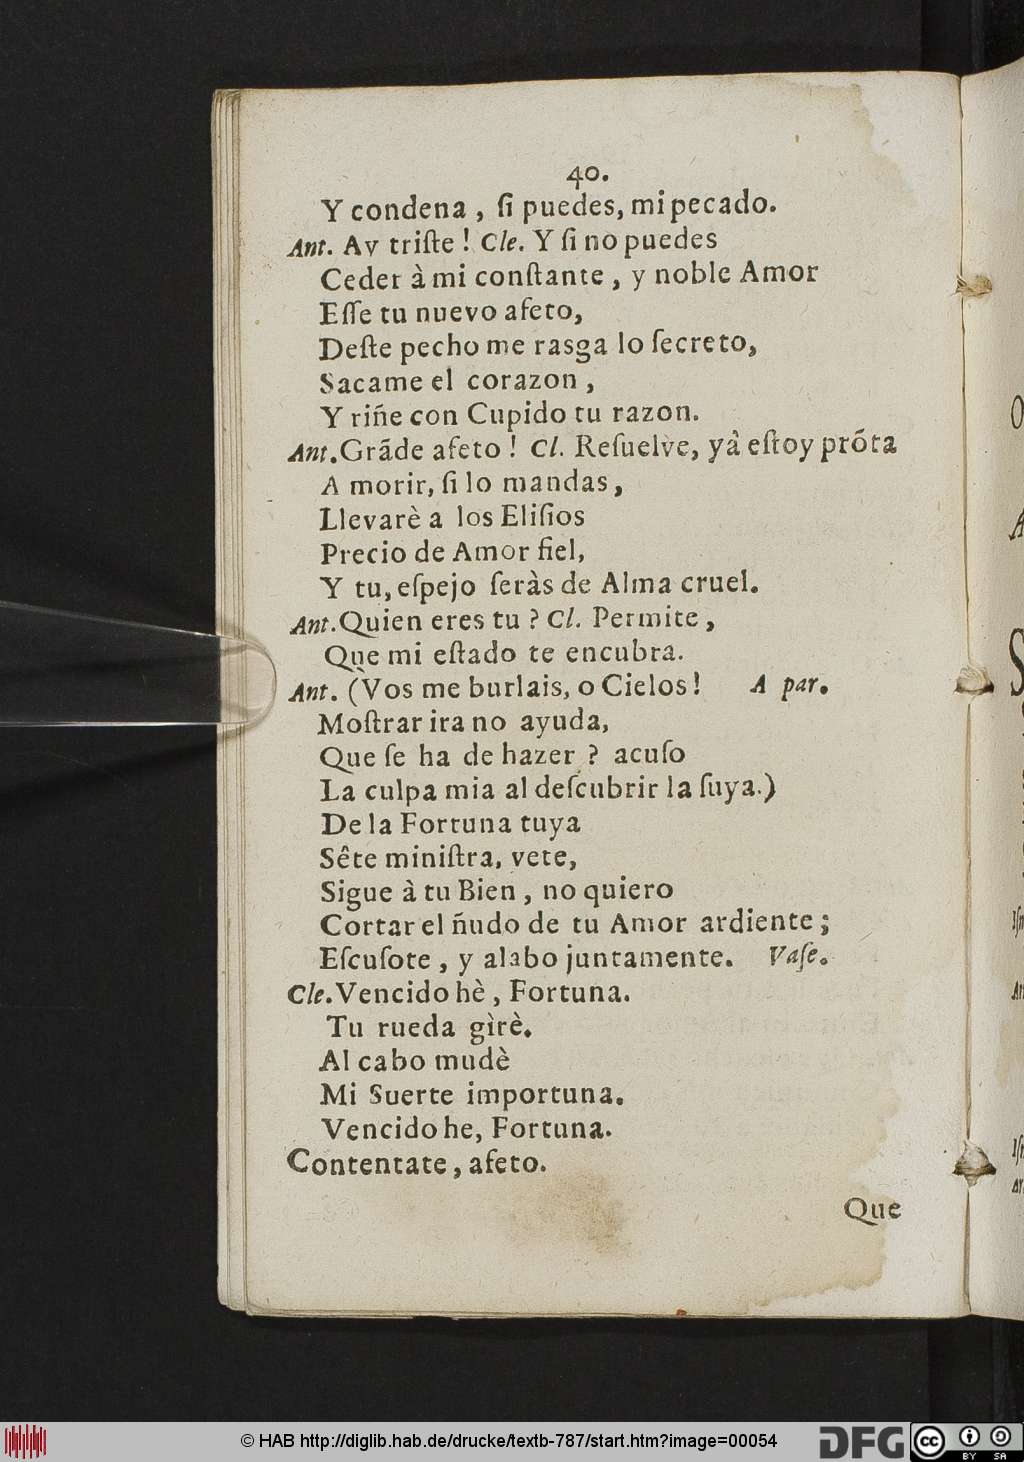 40.
Y condena , ſi puedes, mi pecado.
Ant. Ay triſte ! Cle. Y ſi no puedes
Ceder à mi conſtante , y noble Amor
Eſſe tu nuevo afeto,
Deſte pecho me rasga lo ſecreto,
Sacame el corazon ,
Y riñe con Cupido tu razon.
Ant. Grãde afeto ! Cl. Reſuelve, yà eſtoy prõta
A morir, ſi lo mandas ,
Llevarè a los Eliſios
Precio de Amor fiel,
Y tu, eſpejo ſeràs de Alma cruel.
Ant. Quien eres tu ? Cl. Permite ,
Que mi eſtado te encubra.
Ant. (Vos me burlais, o Cielos ! A par.
Moſtrar ira no ayuda,
Que ſe ha de hazer ? acuſo
La culpa mia al deſcubrir la ſuya.)
De la Fortuna tuya
Sête miniſtra, vete,
Sigue à tu Bien , no quiero
Cortar el ñudo de tu Amor ardiente ;
Eſcuſote , y alabo juntamente. Vaſe.
Cle. Vencido hè , Fortuna.
Tu rueda gìrè.
Al cabo mudè
Mi Suerte importuna.
Vencido he, Fortuna.
Contentate , afeto.
Que
© HAB http://diglib.hab.de/drucke/textb-787/start.htm?image=00054
DFG
cc BY SA